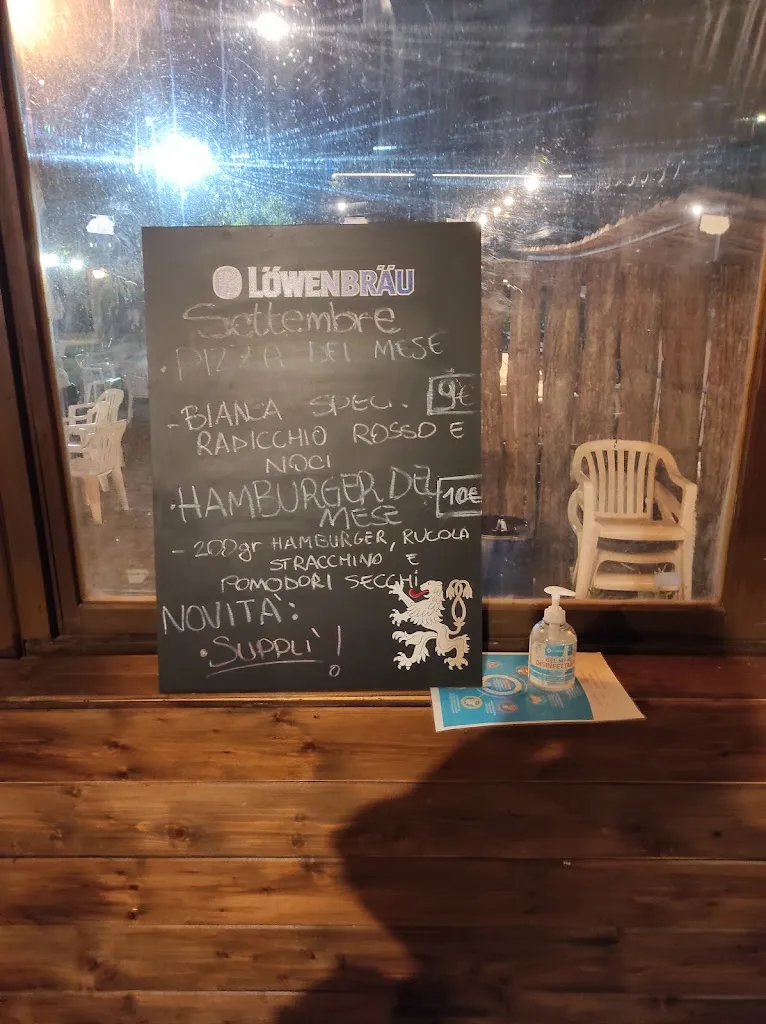 LÖWENBRÄU
Settembre
• PIZZA DEL MESE
- BIANCA SPEC. 9€
RADICCHIO ROSSO E
NOCI
• HAMBURGER DEL 10€
MESE
- 200gr HAMBURGER, RUCOLA
STRACCHINO E
POMODORI SECCHI
NOVITÀ:
• SUPPLÌ!
GEL MANI